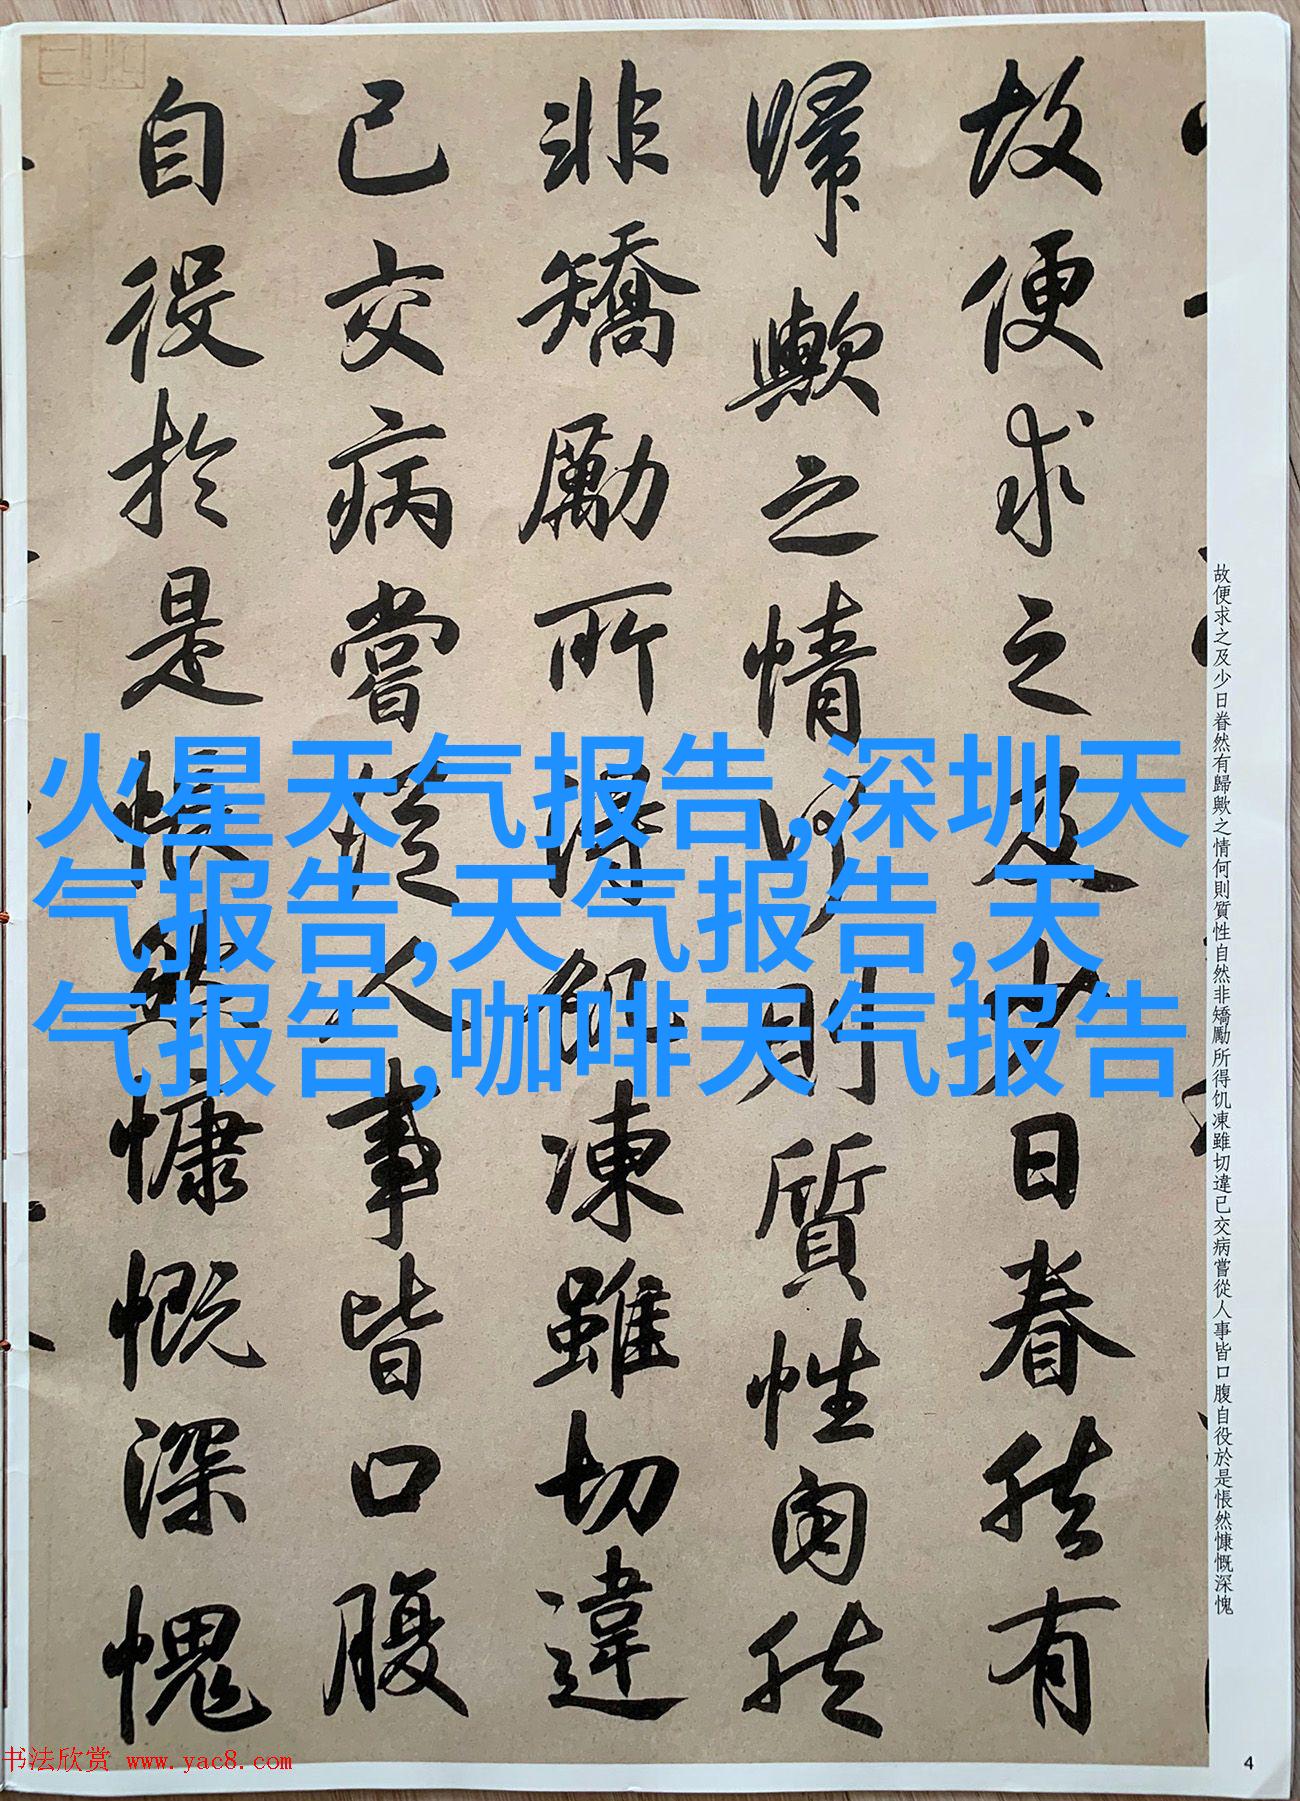 故便求之及少日眷然有
歸歟之情何則質性自然
非矯勵所得飢凍雖切違
已交病嘗從人事皆口腹
自役於是悵然慷慨深愧
火星天气报告,深圳天
气报告,天气报告,天
气报告,咖啡天气报告
故便求之及少日眷然有歸歟之情何則質性自然非矯勵所得饥凍雖切違已交病嘗從人事皆口腹自役於是悵然慷慨深愧
书法欣赏 www.yac8.com
4